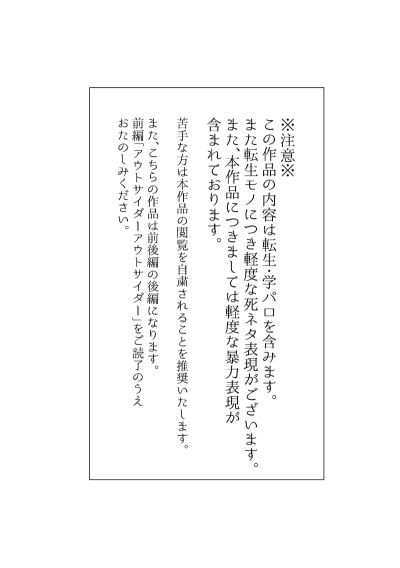 ※注意※
この作品の内容は転生・学パロを含みます。
また転生モノにつき軽度な死ネタ表現がございます。
また、本作品につきましては軽度な暴力表現が
含まれております。
苦手な方は本作品の閲覧を自粛されることを推奨いたします。
また、こちらの作品は前後編の後編になります。
前編「アウトサイダーアウトサイダー」をご読了のうえ
おたのしみください。